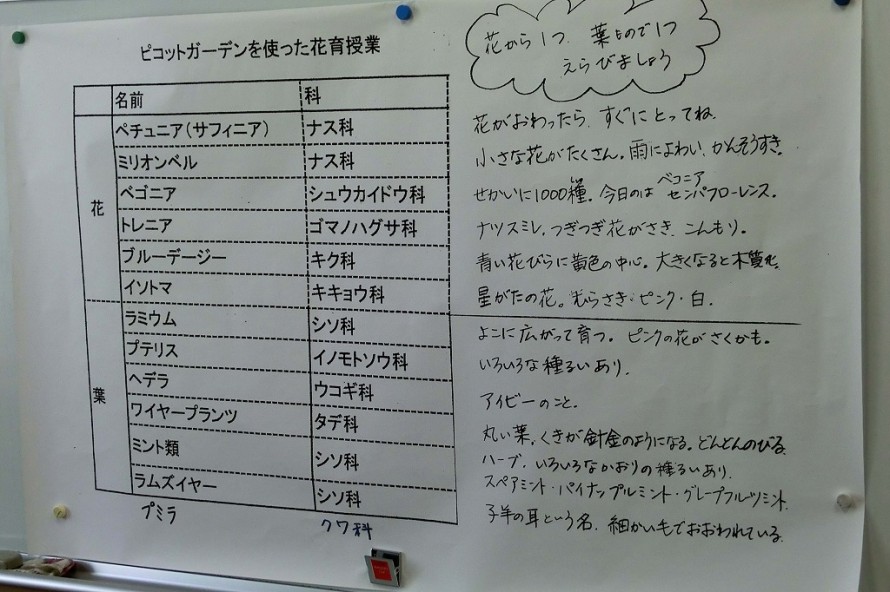 ピコットガーデンを使った花育授業
花から1つ、葉もので1つ
えらびましょう
名前 科
花
ペチュニア(サフィニア) ナス科 花がおわったら、すぐにとってね。
ミリオンベル ナス科 小さな花がたくさん。雨によわい、かんそうすき。
ベゴニア シュウカイドウ科 せかいに1000種。今日のは ベコニア センパフローレンス。
トレニア ゴマノハグサ科 ナツスミレ、つぎつぎ花がさき、こんもり。
ブルーデージー キク科 青い花びらに黄色の中心。大きくなると木質化。
イソトマ キキョウ科 星がたの花。むらさき・ピンク・白.
葉
ラミウム シソ科 よこに広がって育つ。ピンクの花がさくかも。
プテリス イノモトソウ科 いろいろな種るいあり.
ヘデラ ウコギ科 アイビーのこと.
ワイヤープランツ タデ科 丸い葉、くきが針金のようになる。どんどんのびる.
ミント類 シソ科 ハーブ、いろいろなかおりの種るいあり.
スペアミント・パイナップルミント・グレープフルーツミント.
ラムズイヤー シソ科 子羊の耳という名、細かい毛でおおわれている.
プミラ クワ科